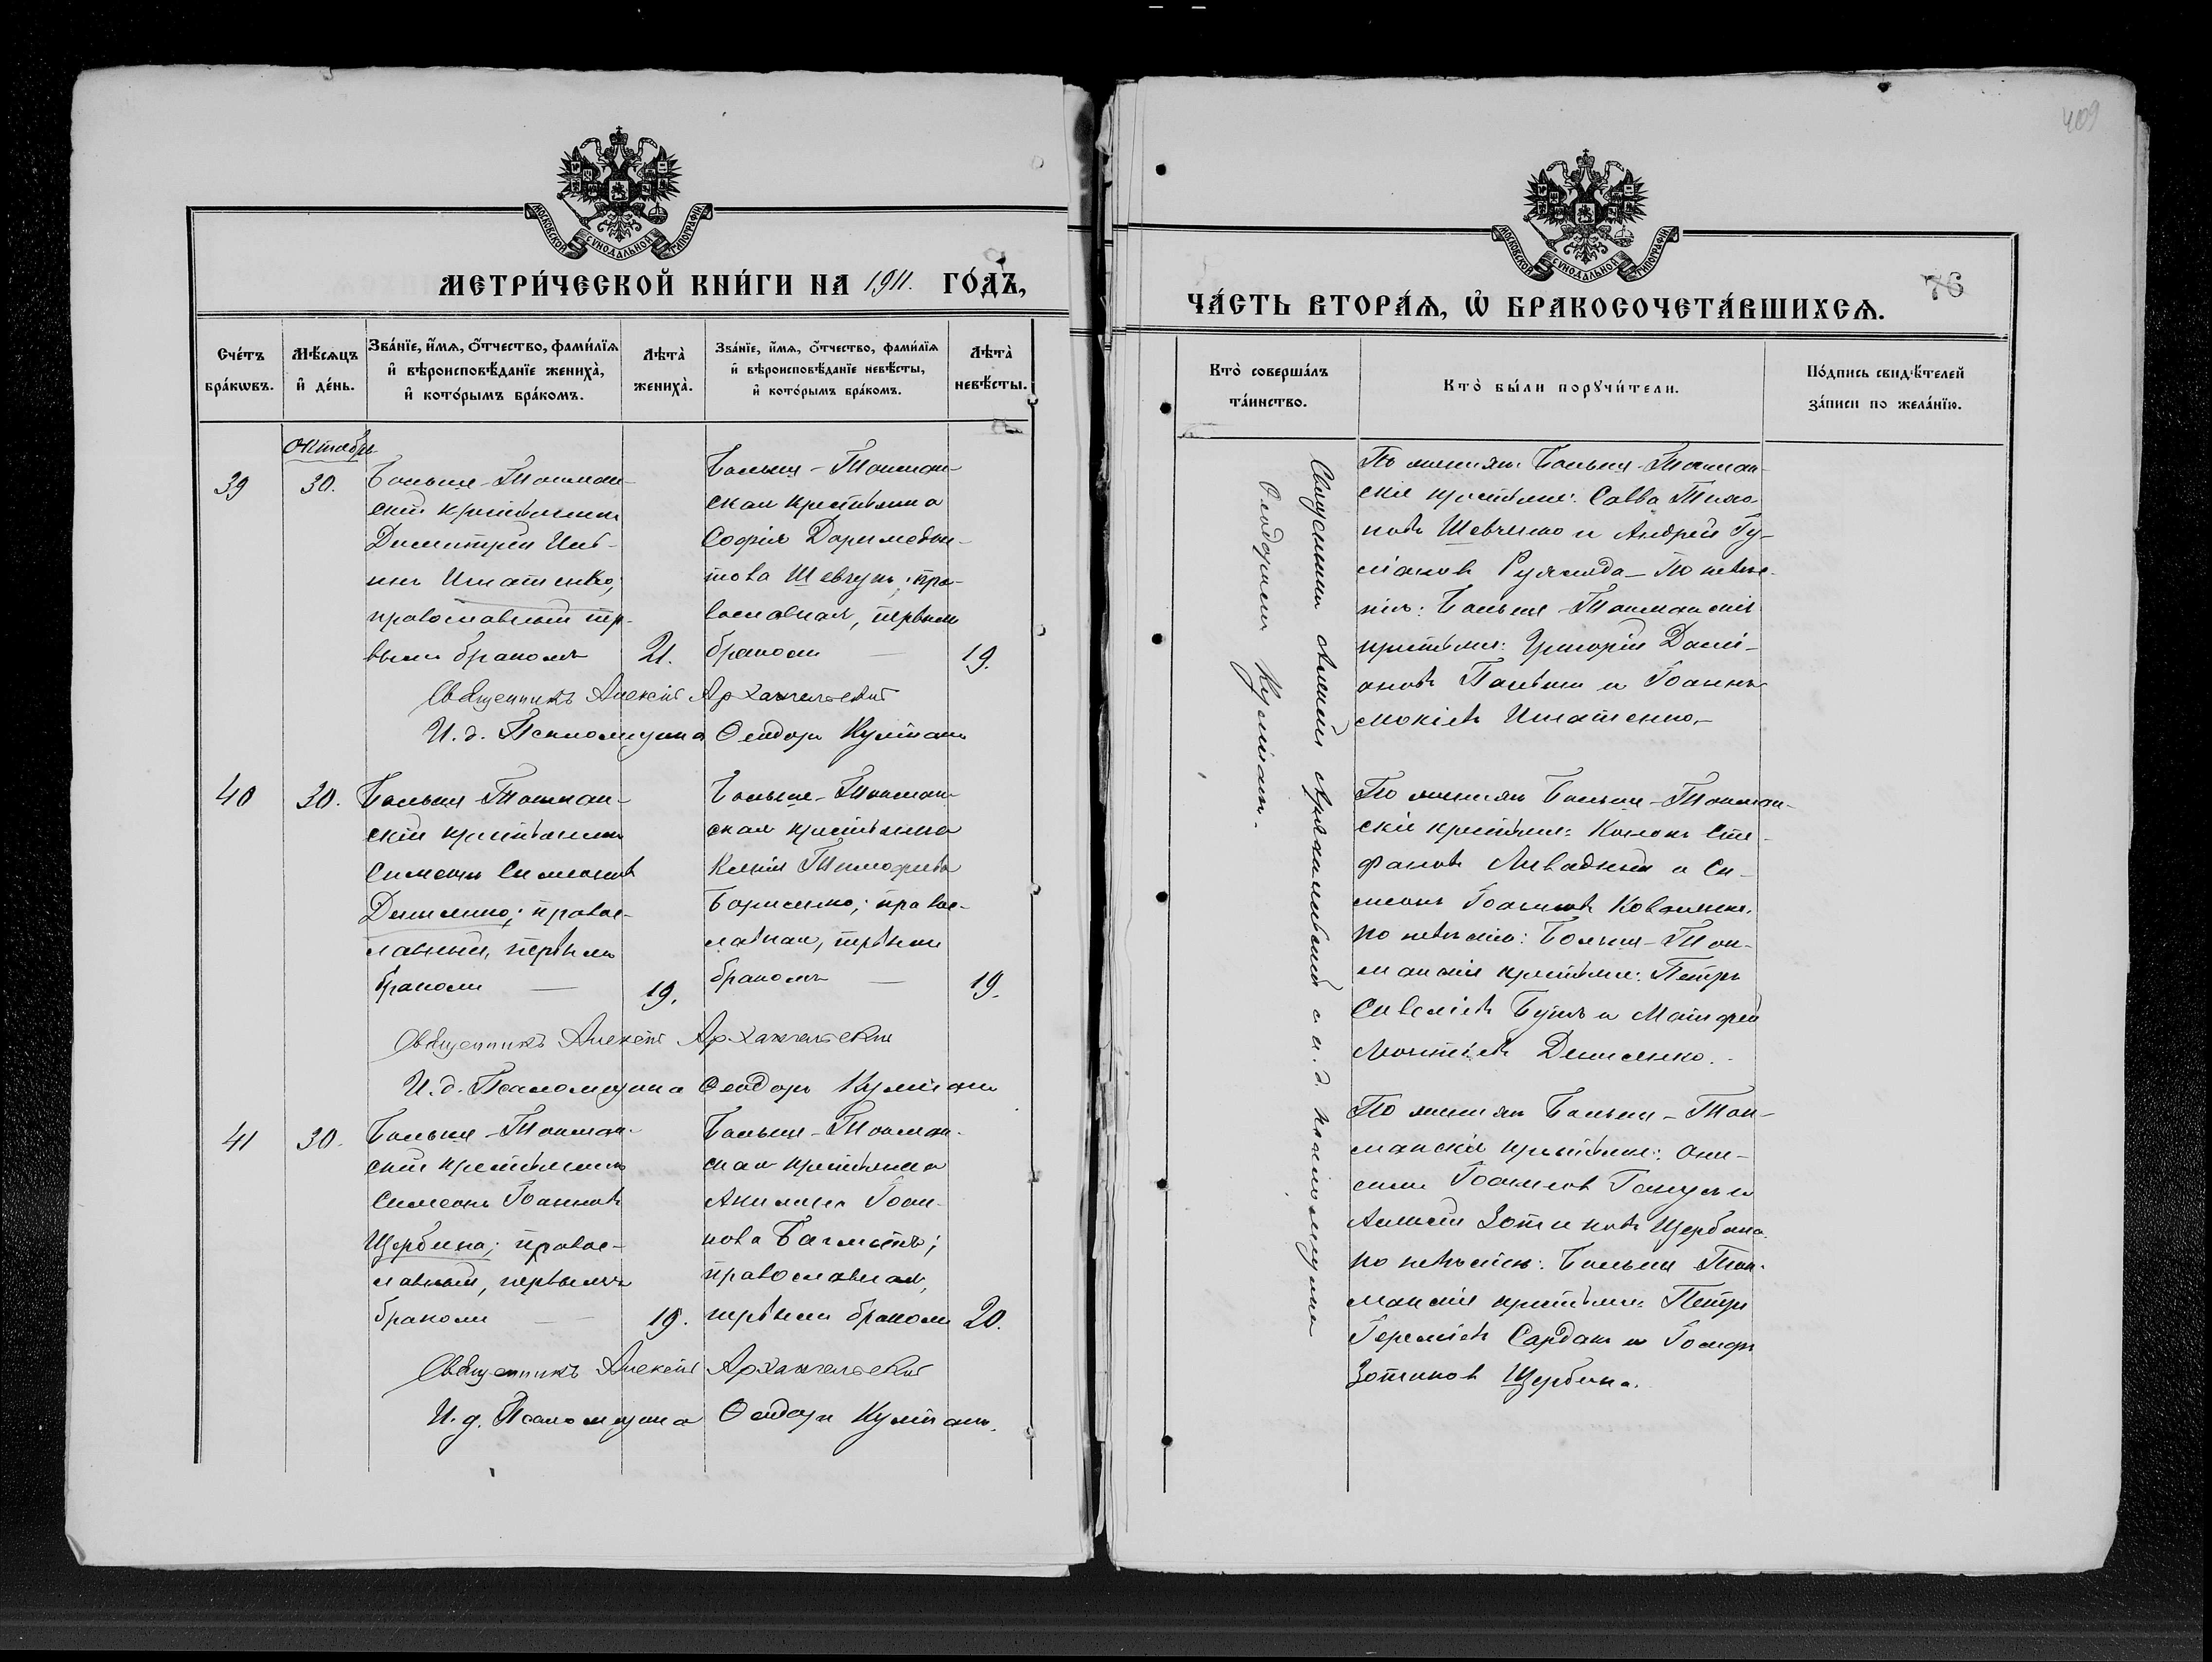 409
МОСКОВСКОЙ СѴНОДАЛЬНОЙ ТИПОГРАФІИ
МЕТРИ́ЧЕСКОЙ КНИ́ГИ НА 1911. ГО́ДЪ,
Сче́тъ бра́кѡвъ.
Мѣ́сяцъ и҆ де́нь.
Зва́нїе, и҆́мѧ, ѻ҆́тчество, фами́лїѧ
и҆ вѣроисповѣ́данїе жениха̀,
и҆ кото́рымъ бра́комъ.
Лѣта̀ жениха̀.
Зва́нїе, и҆́мѧ, ѻ҆́тчество, фами́лїѧ
и҆ вѣроисповѣ́данїе невѣ́сты,
и҆ кото́рымъ бра́комъ.
Лѣта̀ невѣ́сты.
Октябрь
39
30.
Больше-Токмак-
скій крестьянинъ
Димитрій
Игнатенко;
православный, пер-
вымъ бракомъ
21.
Больше-Токмак-
ская крестьянка
Софія Доримедон-
това Шевчукъ; пра-
вославная, первымъ
бракомъ
19.
Священникъ Алексій Архангельскій
И. д. Псаломщика Ѳеодоръ
40
30.
Больше-Токмак-
скій крестьянинъ
Симеонъ Симеоновъ
Денисенко; правос-
лавный, первымъ
бракомъ
19.
Больше-Токмак-
ская крестьянка
Ксенія Тимофеева
Борисенко; правос-
лавная, первымъ
бракомъ
19.
Священникъ Алексій Архангельскій
И. д. Псаломщика Ѳеодоръ
41
30.
Больше-Токмак-
скій крестьянинъ
Симеонъ Іоанновъ
Щербина; правос-
лавный, первымъ
бракомъ
19.
Больше-Токмак-
ская крестьянка
Акилина Іоан-
нова
православная,
первымъ бракомъ
20.
Священникъ Алексій Архангельскій
И. д. Псаломщика Ѳеодоръ
МОСКОВСКОЙ СѴНОДАЛЬНОЙ ТИПОГРАФІИ
76
ЧА́СТЬ ВТОРА́Ѧ, Ѡ҆ БРАКОСОЧЕТА́ВШИХСѦ.
Кто̀ соверша́лъ
та́инство.
Кто̀ бы́ли порꙋчи́тели.
По́дпись свидѣ́телей
за́писи по жела́нїю.
Священникъ Алексій Архангельскій и и. д. псаломщика
Ѳеодоромъ
По женихѣ: Больше-Токмак-
скіе крестьяне: Савва Тихо-
новъ Шевченко и Андрей Іу-
ліановъ По невѣс-
тѣ: Больше-Токмакскіе
крестьяне: Григорій Дамі-
ановъ и Іоаннъ
Мокіевъ Игнатенко.
По женихѣ: Больше-Токмак-
скіе крестьяне: Кононъ Сте-
фановъ Ливадный и Си-
меонъ Іоанновъ
по невѣстѣ: Больше-Ток-
макскіе крестьяне: Петръ
и Матфей
Денисенко.
По женихѣ: Больше-Ток-
макскіе крестьяне: Они-
симъ Іоанновъ и
Алексій Зотиковъ Щербина.
по невѣстѣ: Больше-Ток-
макскіе крестьяне: Петръ
Іереміевъ и Іосифъ
Зотиковъ Щербина.